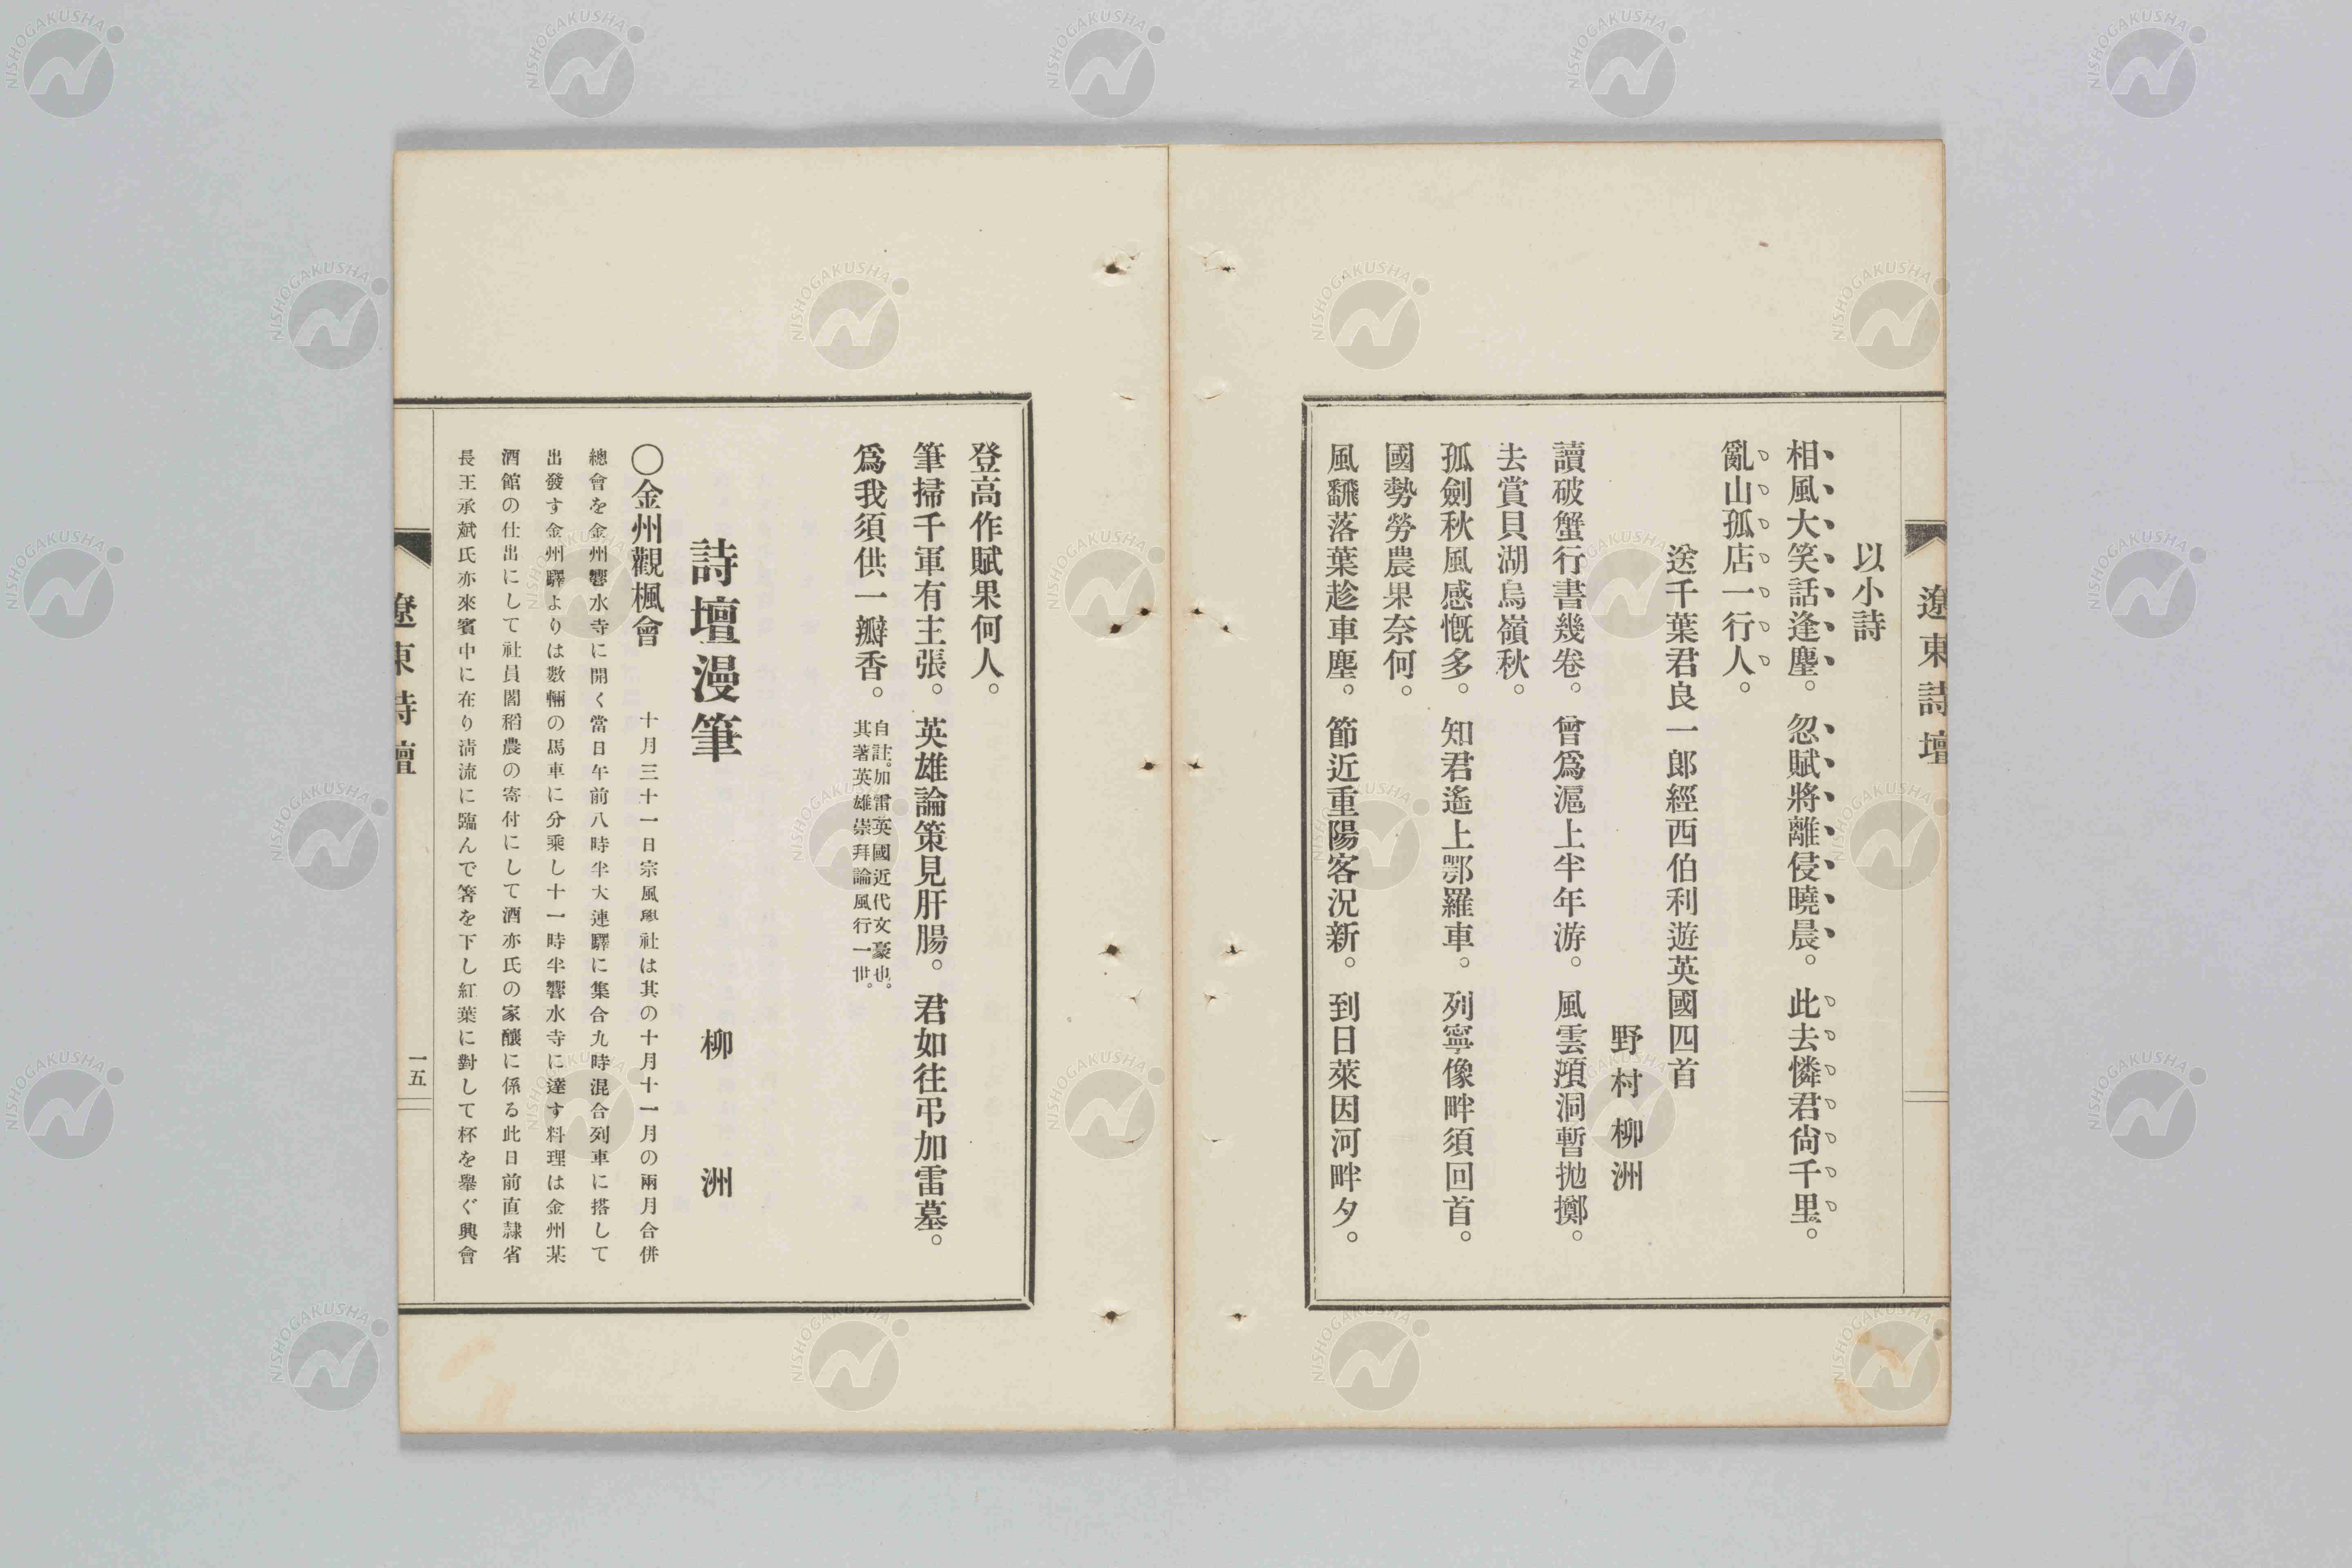 遼東詩壇
以小詩
相風大笑話逢塵。忽賦將離侵曉晨。此去憐君尙千里。
亂山孤店一行人。
送千葉君良一郎經西伯利遊英國四首
野村柳洲
讀破蟹行書幾卷。曾爲滬上半年游。風雲澒洞暫抛擲。
去賞貝湖烏嶺秋。
孤劍秋風感慨多。知君遙上鄂羅車。列寧像畔須回首。
國勢勞農果奈何。
風飜落葉趁車塵。節近重陽客況新。到日萊因河畔夕。
登高作賦果何人。
筆掃千軍有主張。英雄論策見肝腸。君如往弔加雷墓。
爲我須供一瓣香。自註。加雷英國近代文豪也。
其著英雄崇拜論風行一世。
詩壇漫筆
柳洲
〇金州觀楓會 十月三十一日宗風學社は其の十月十一月の兩月合併
總會を金州響水寺に開く當日午前八時半大連驛に集合九時混合列車に搭して
出發す金州驛よりは數輛の馬車に分乘し十一時半響水寺に達す料理は金州某
酒館の仕出にして社員閻稻農の寄付にして酒亦氏の家釀に係る此日前直隷省
長王承斌氏亦來賓中に在り淸流に臨んで箸を下し紅葉に對して杯を擧ぐ興會
遼東詩壇
一五
NISHOGAKUSHA